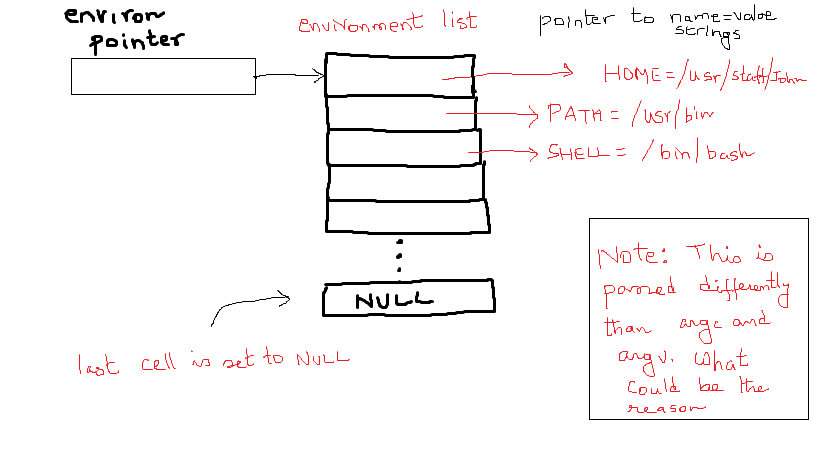 environ
pointer
environment list
pointer to name=value
strings
HOME=/usr/staff/John
PATH=/usr/bin
SHELL= /bin/bash
NULL
last cell is set to NULL
Note: This is
passed differently
than argc and
argv. What
could be the
reason